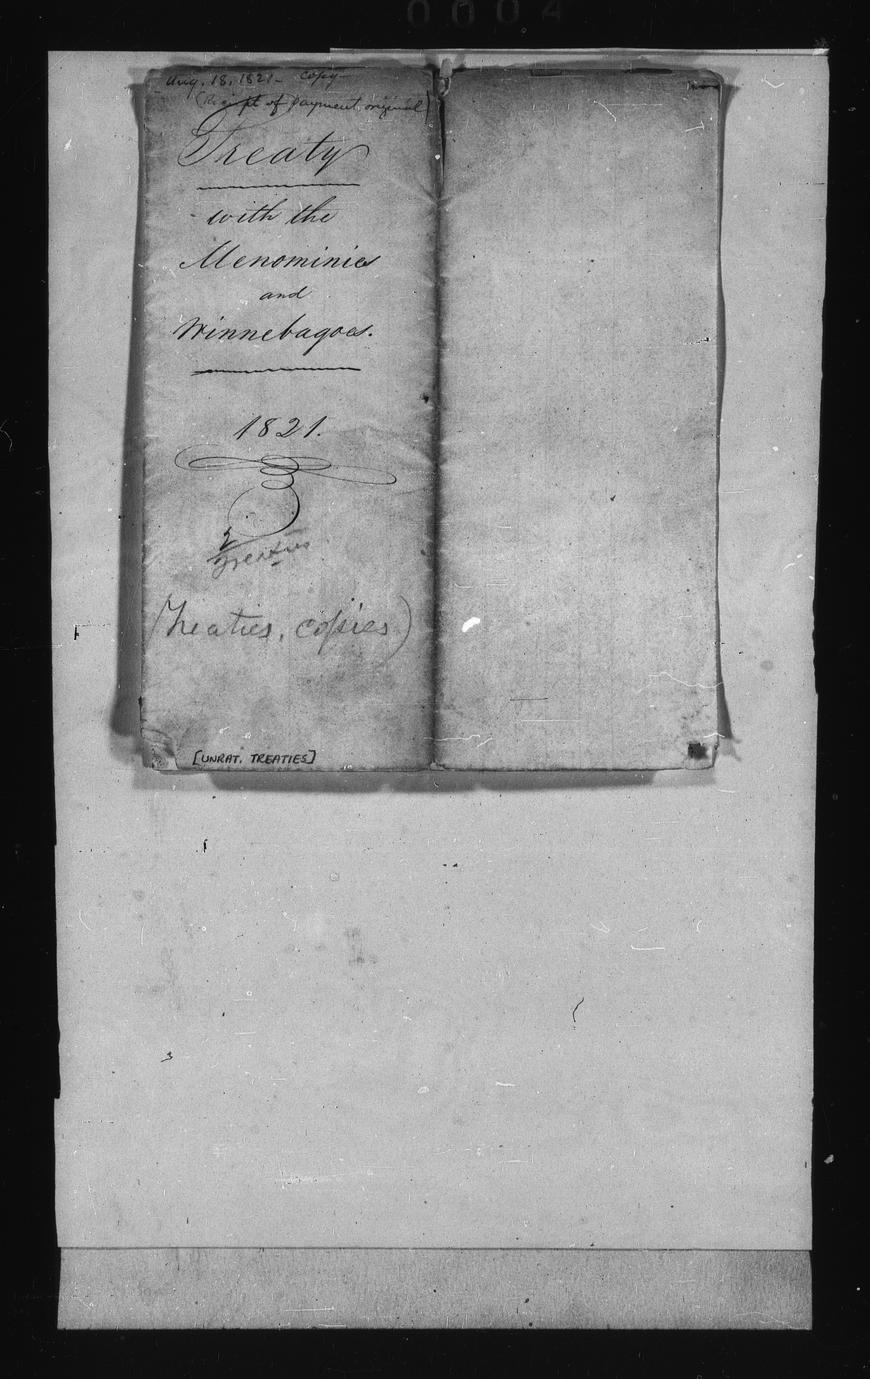 0004
Aug. 18, 1821 - copy
(Receipt of payment original)
Treaty
with the
Menominies
and
Winnebagoes.
1821.
2
Treaties
(Treaties, copies)
[UNRAT. TREATIES]